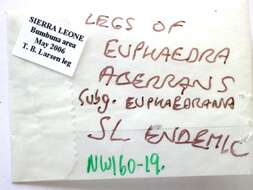 SIERRA LEONE
Bumbuna area
May 2006
T. B. Larsen leg
LEGS OF
EUPHAEDRA
ABERRANS
Subg. EUPHAEDRANA
SL ENDEMIC
NW160-19.